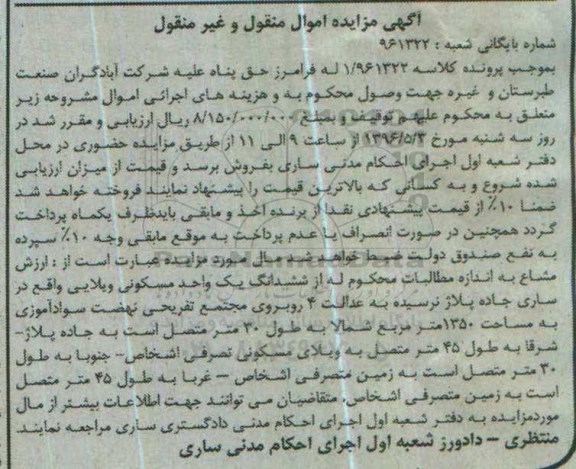 آگهی مزایده اموال منقول و غیر منقول
شماره بایگانی شعبه : ۹۶۱۳۲۲
بموجب پرونده کلاسه ۱/۹۶۱۳۲۲ له فرامرز حق پناه علیه شرکت آبادگران صنعت
طبرستان و غیره جهت وصول محکوم به و هزینه های اجرائی اموال مشروحه زیر
متعلق به محکوم علیهم توقیف و بمبلغ ۸/۱۵۰/۰۰۰/۰۰۰ ریال ارزیابی و مقرر شد در
روز سه شنبه مورخ ۱۳۹۶/۵/۳ از ساعت ۹ الی ۱۱ از طریق مزایده حضوری در محل
دفتر شعبه اول اجرای احکام مدنی ساری بفروش برسد و قیمت از میزان ارزیابی
شده شروع و به کسانی که بالاترین قیمت را پیشنهاد نمایند فروخته خواهد شد
ضمنا ۱۰٪ از قیمت پیشنهادی نقدا از برنده اخذ و مابقی بایدظرف یکماه پرداخت
گردد همچنین در صورت انصراف یا عدم پرداخت به موقع مابقی وجه ۱۰٪ سپرده
به نفع صندوق دولت ضبط خواهد شد مال مورد مزایده عبارت است از : ارزش
مشاع به اندازه مطالبات محکوم له از ششدانگ یک واحد مسکونی ویلایی واقع در
ساری جاده پلاژ نرسیده به عدالت ۴ روبروی مجتمع تفریحی نهضت سوادآموزی
به مساحت ۱۳۵۰متر مربع شمالا به طول ۳۰ متر متصل است به جاده پلاژ-
شرقا به طول ۴۵ متر متصل به ویلای مسکونی تصرفی اشخاص- جنوبا به طول
۳۰ متر متصل است به زمین متصرفی اشخاص – غربا به طول ۴۵ متر متصل
است به زمین متصرفی اشخاص. متقاضیان می توانند جهت اطلاعات بیشتر از مال
موردمزایده به دفتر شعبه اول اجرای احکام مدنی دادگستری ساری مراجعه نمایند.
منتظری – دادورز شعبه اول اجرای احکام مدنی ساری